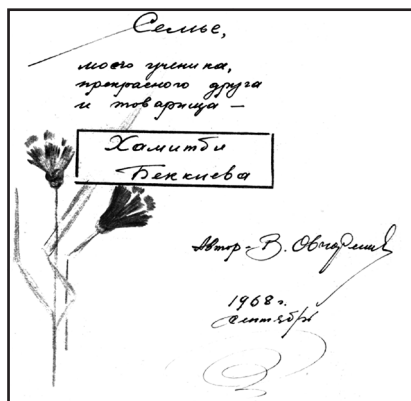 Семье,
моего ученика,
прекрасного друга
и товарища —
Хамитби
Беккиева
Автор – В.
1968 г.
сентябрь